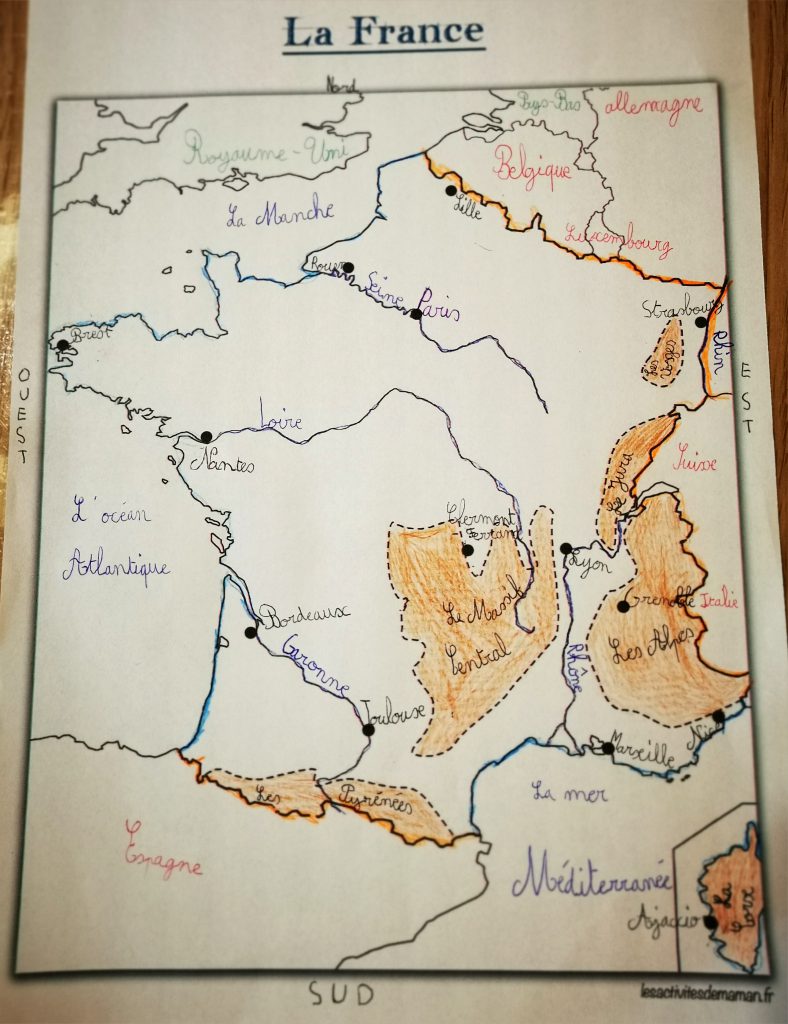 La France
Nord
Royaume-Uni
Pays-Bas
allemagne
Belgique
La Manche
Lille
Luxembourg
Rouen
Seine
Paris
Strasbourg
Les
Vosges
Rhin
Brest
OUEST
EST
Loire
Nantes
Le Jura
Suisse
L'océan
Atlantique
Clermont
Ferrand
Lyon
Le Massif
Central
Grenoble
Italie
Les Alpes
Bordeaux
Garonne
Rhône
Toulouse
Marseille
Nice
Les
Pyrénées
La mer
Méditerranée
Espagne
La
Corse
Ajaccio
SUD
lesactivitesdemaman.fr